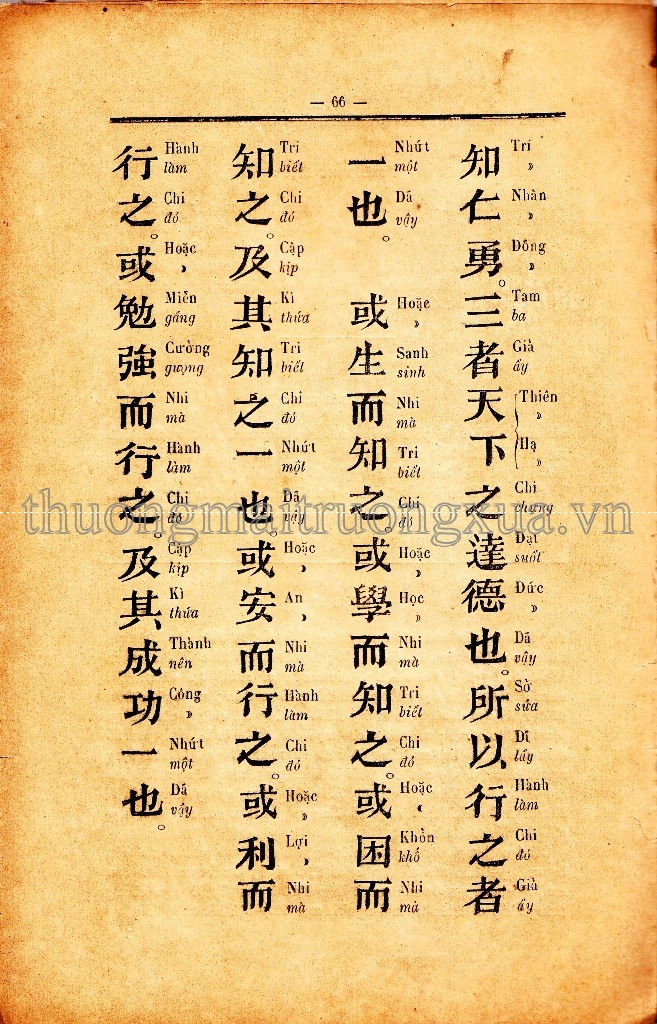 — 66 —
知仁勇。三者天下之達德也。所以行之者
Trí »
Nhân »
Dõng »
Tam ba
Giả ấy
Thiên »
Hạ »
Chi chưng
Đạt suốt
Đức »
Dã vậy
Sở sửa
Dĩ lấy
Hành làm
Chi đó
Giả ấy
一也。或生而知之。或學而知之。或困而
Nhứt một
Dã vậy
Hoặc »
Sanh sinh
Nhi mà
Tri biết
Chi đó
Hoặc »
Học »
Nhi mà
Tri biết
Chi đó
Hoặc «
Khổn khổ
Nhi mà
知之。及其知之一也。或安而行之。或利而
Tri biết
Chi đó
Cập kịp
Kì thửa
Tri biết
Chi đó
Nhứt một
Dã vậy
Hoặc ,
An ,
Nhi mà
Hành làm
Chi đó
Hoặc »
Lợi ,
Nhi mà
行之。或勉強而行之。及其成功一也。
Hành làm
Chi đó
Hoặc ,
Miễn gáng
Cường gượng
Nhi mà
Hành làm
Chi đó
Cập kịp
Kì thửa
Thành nên
Công »
Nhứt một
Dã vậy
thuongmaitruongxua.vn